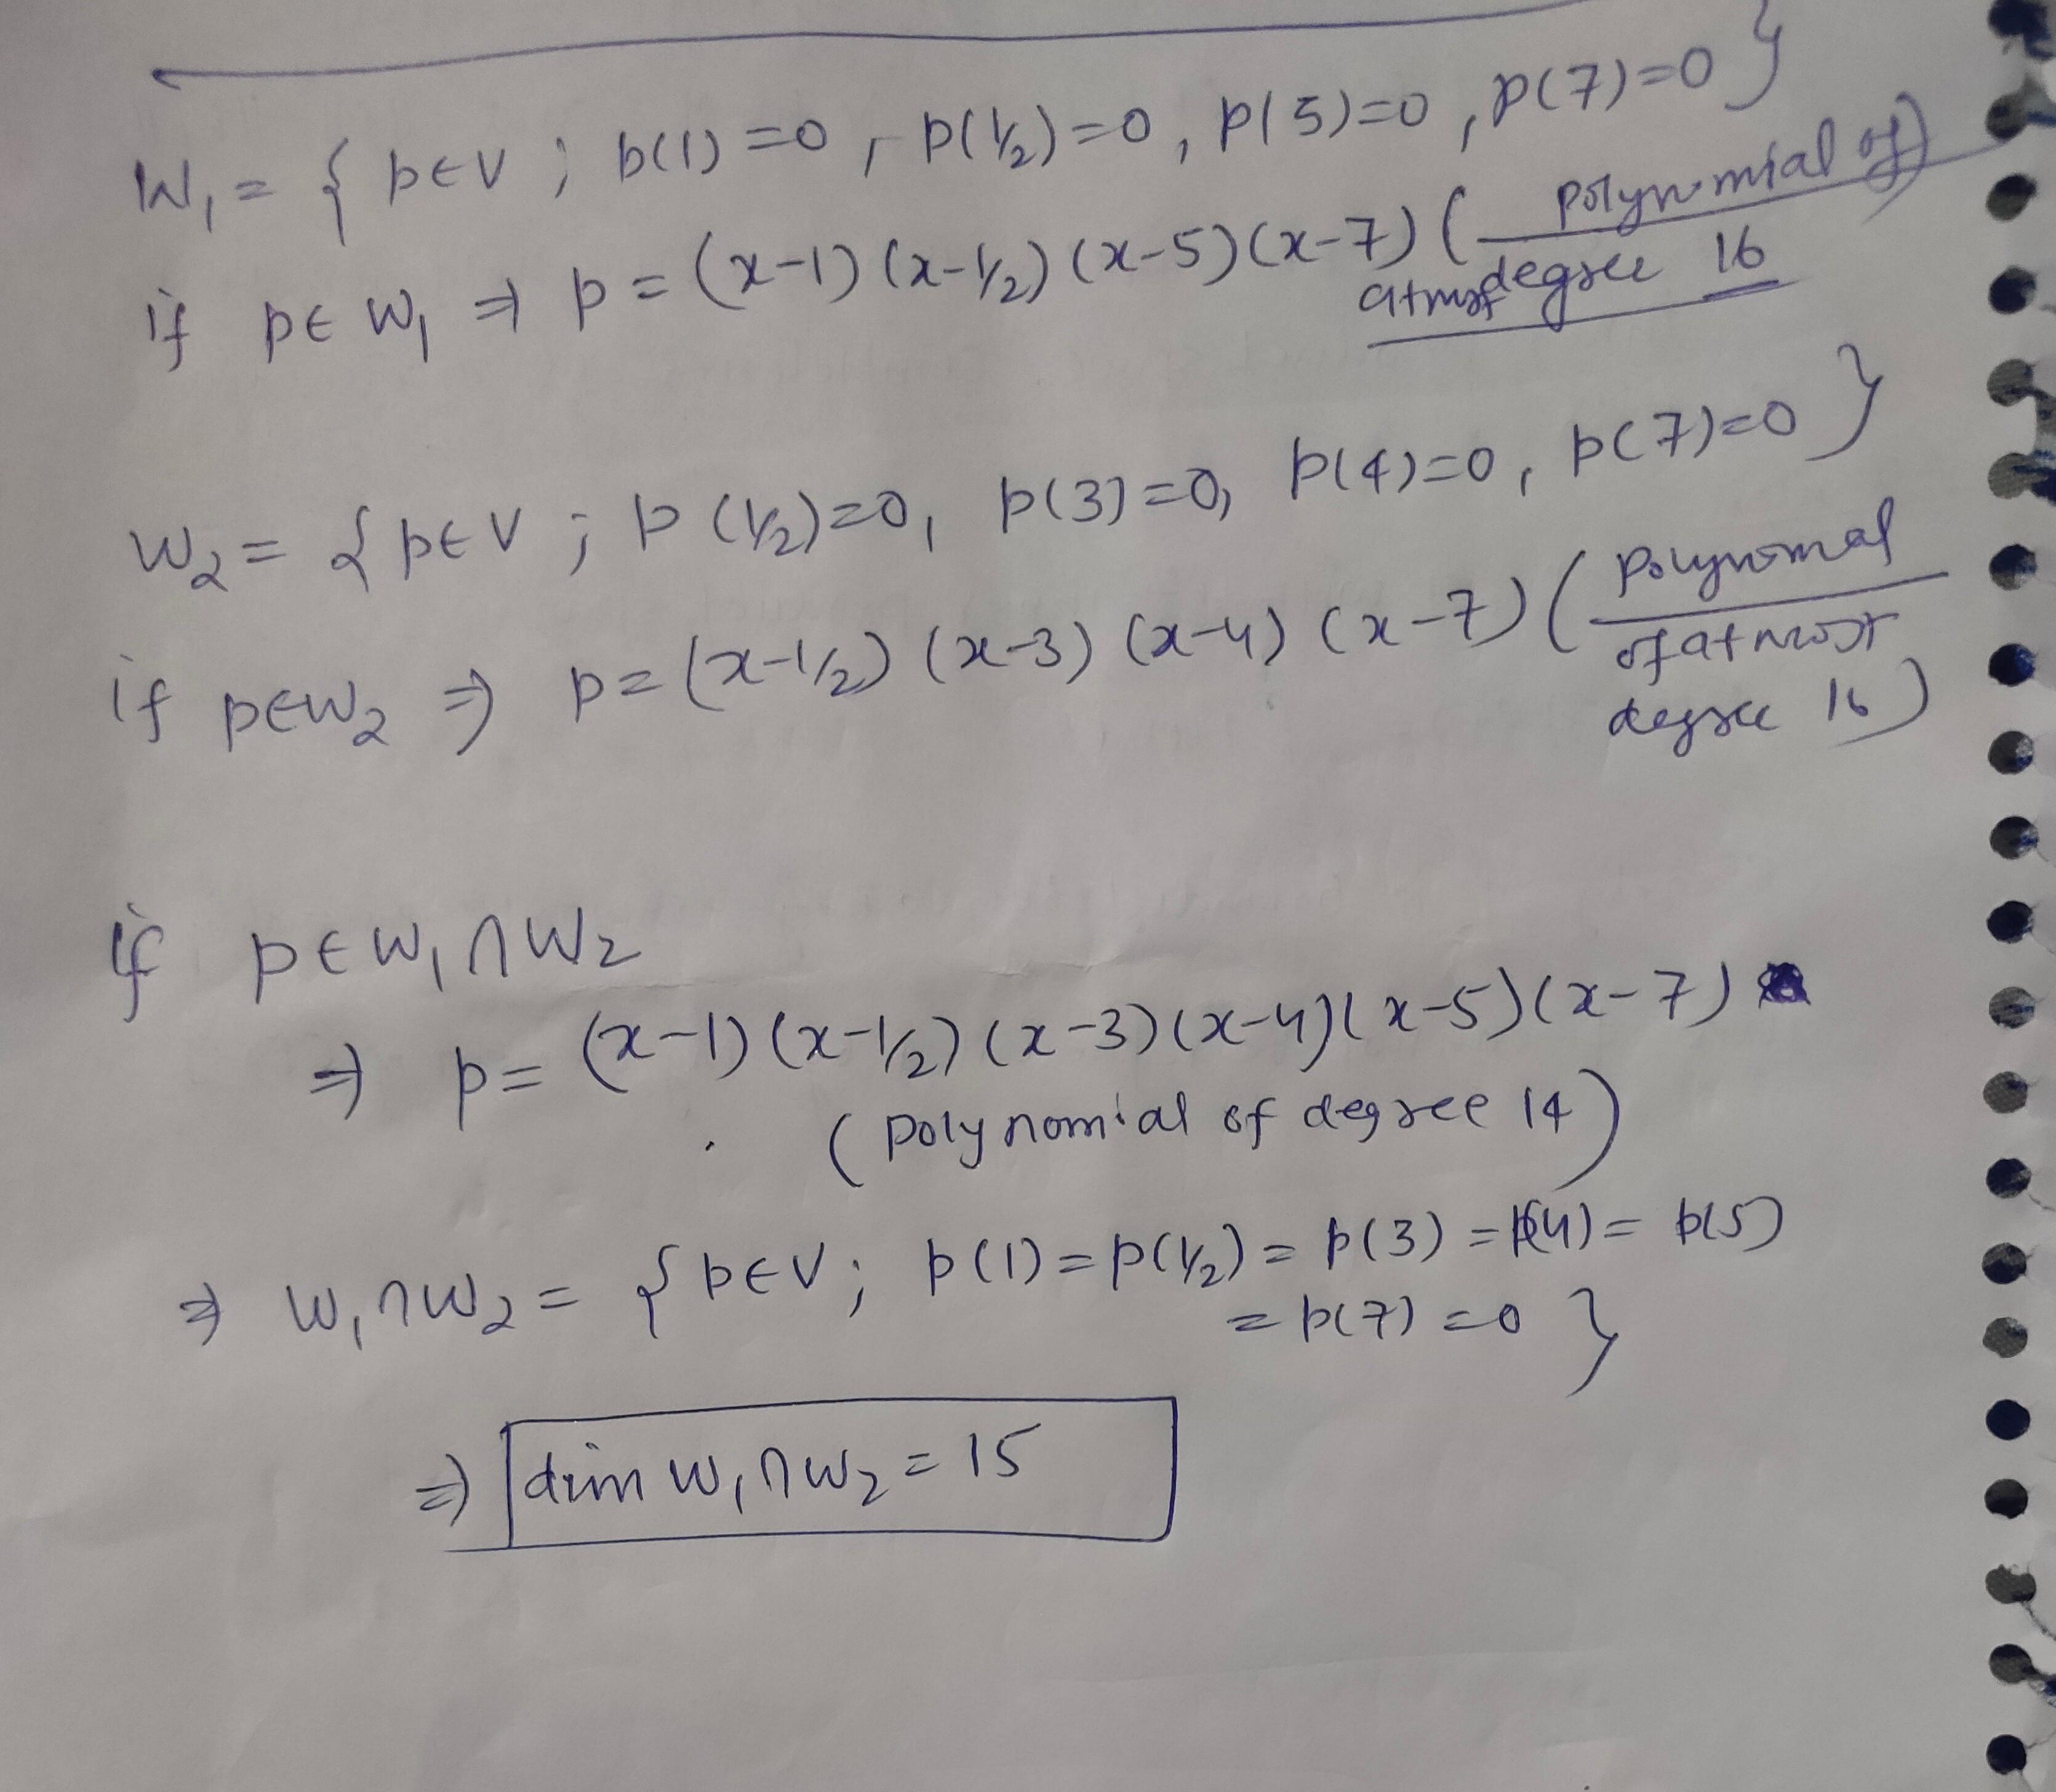 W₁ = { p∈V ; p(1)=0, p(1/2)=0, p(5)=0, p(7)=0 }
if p∈W₁ ⇒ p = (x-1)(x-1/2)(x-5)(x-7)( polynomial of)
atmost degree 16
W₂ = { p∈V ; p(1/2)=0, p(3)=0, p(4)=0, p(7)=0 }
if p∈W₂ ⇒ p=(x-1/2)(x-3)(x-4)(x-7)( polynomial
of atmost
degree 16)
if p∈W₁∩W₂
⇒ p= (x-1)(x-1/2)(x-3)(x-4)(x-5)(x-7)
. (polynomial of degree 14)
⇒ W₁∩W₂ = { p∈V; p(1)=p(1/2)=p(3)=p(4)=p(5)
=p(7)=0 }
⇒ dim W₁∩W₂ = 15